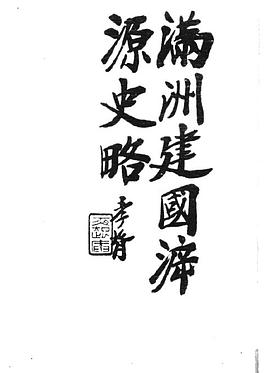 滿洲建國溯
源史略
孝胥